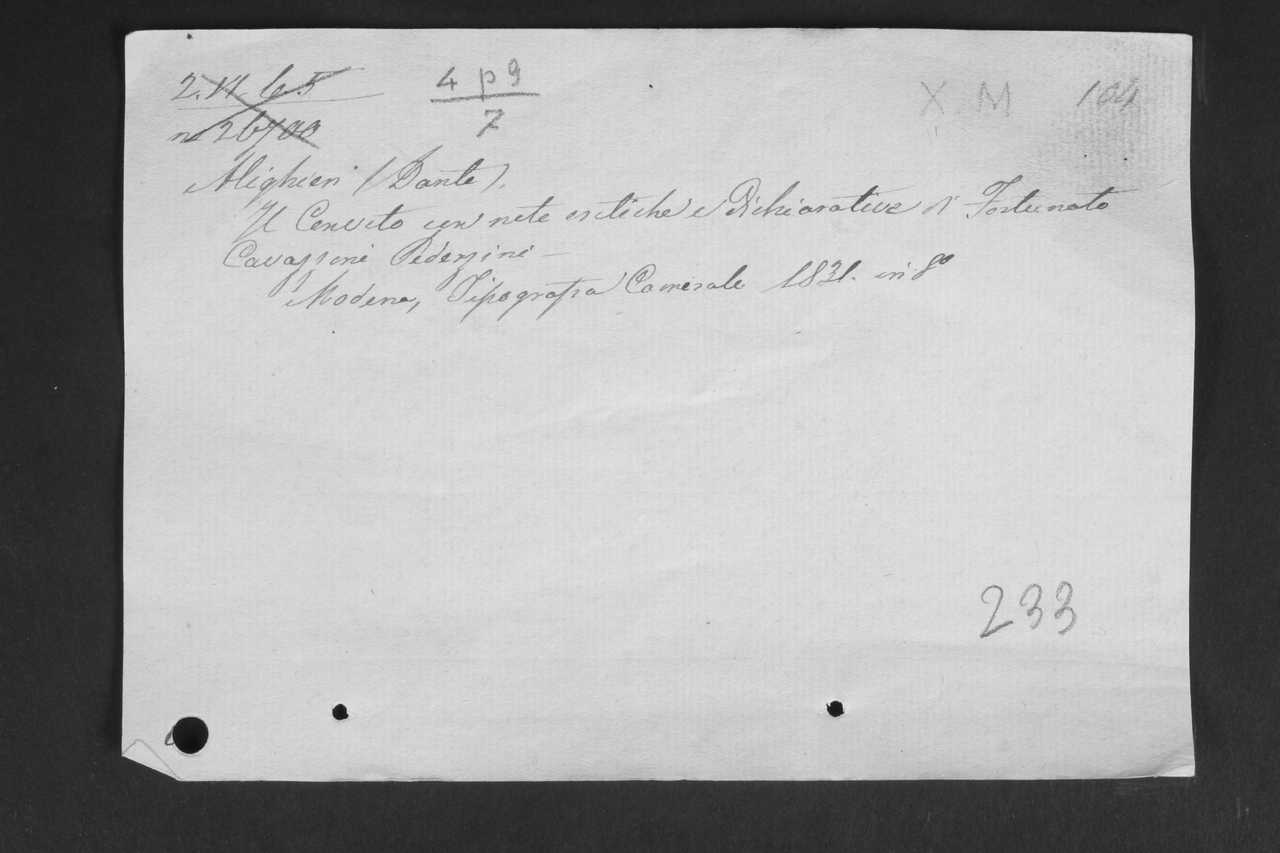 2. 11 6. 5
4 p 9
7
X M
104
nº 26700
Alighieri (Dante).
Il Convito con note critiche e dichiarative di Fortunato
Cavazzoni Pederzini –
Modena, Tipografia Camerale 1831. in 8º
233